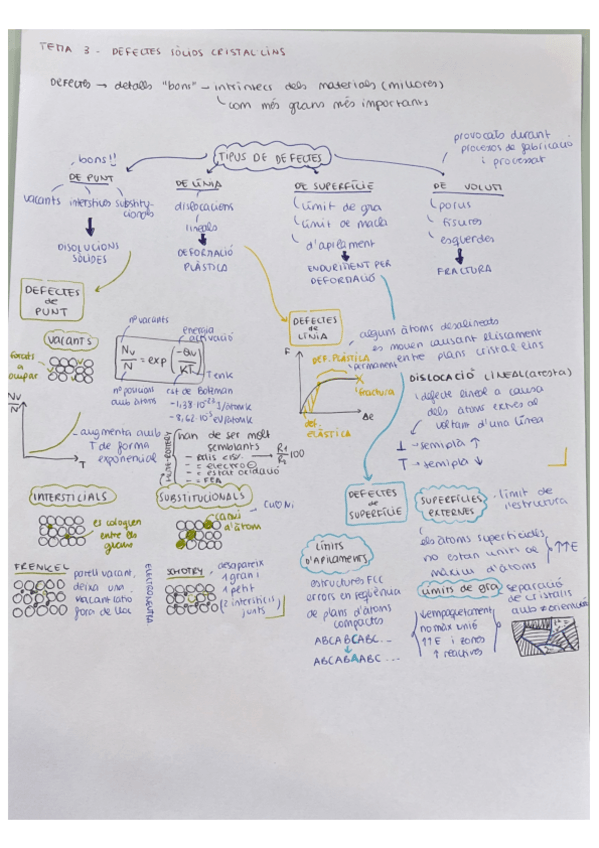 TEMA 3 - DEFECTES SÒLIDS CRISTAL·LINS
DEFECTES → detalls "bons" — intrínsecs dels materials (millores)
com més grans més importants
TIPUS DE DEFECTES
provocats durant
processos de fabricació
i processat
bons!!
DE PUNT
vacants intersticis substitu-
cionals
DISOLUCIONS
SÒLIDES
DE LÍNIA
dislocacions
lineals
DEFORMACIÓ
PLÀSTICA
DE SUPERFÍCIE
límit de gra
límit de macla
d'apilament
ENDURIMENT PER
DEFORMACIÓ
DE VOLUM
porus
fisures
esquerdes
FRACTURA
DEFECTES
de
PUNT
VACANTS
forats
a
ocupar
nº vacants
energia
activació
Nv/N = exp(-Qv/KT)
T en K
nº posicions
amb àtoms
Nv
N
T
augmenta amb
T de forma
exponencial
HUME-ROTHERY
han de ser molt
semblants
- = electro ⊖
- = estat oxidació
INTERSTICIALS
es col·loquen
entre els
grans
SUBSTITUCIONALS
canvi
d'àtom
Cu Ò Ni
FRENKEL
parell vacant,
deixa una
vacant catió
fora de lloc
ELECTRONEUTRA
SCHOTTKY
desapareix
1 gran i
1 petit
junts
DEFECTES
de
LÍNIA
alguns àtoms desalineats
es mouen causant lliscament
entre plans cristal·lins
F
DEF. PLÀSTICA
permanent
fractura
Δe
def.
ELÀSTICA
DISLOCACIÓ LINEAL (aresta)
defecte lineal a causa
dels àtoms extres al
voltant d'una línea
⊥ → semiplà ↑
T → semiplà ↓
DEFECTES
de
SUPERFÍCIE
SUPERFÍCIES
EXTERNES
límit de
l'estructura
els àtoms superficials
no estan units al
màxim d'àtoms
↑↑E
LÍMITS
D'APILAMENTS
estructures FCC
errors en seqüència
de plans d'àtoms
compactes
ABCABCABC ...
ABCABAABC ...
LÍMITS DE GRA
separació
de cristalls
amb ≠ orienció
↓empaquetament
no màx unió
↑↑E i zones
↑ reactives